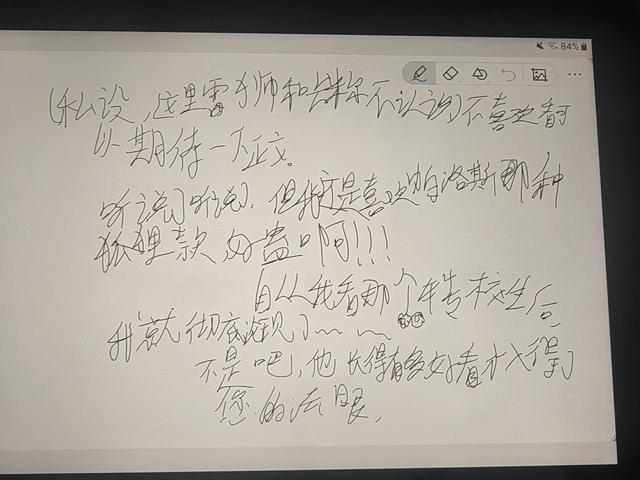 84%
(私设，这里雷狮和卡米尔不认识)不喜欢看可
以期待一下正文。
听说了听说了，但我还是喜欢帕洛斯那种
狐狸款 好蛊啊!!!
自从我看那个转校生后
我就彻底沦陷了~ ~ ~
不是吧，他长得有多好看才入得了
您的法眼，